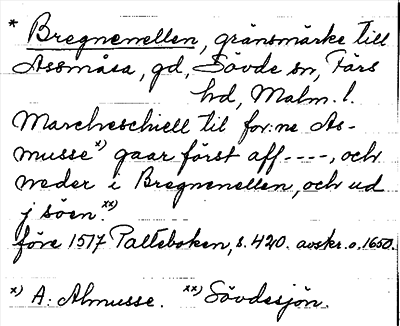 * Bregnenellen, gränsmärke till
Assmåsa, gd, Sövde sn, Färs
hd, Malm. l.
Marcheschiell til for:ne As-
musse x) gaar först aff ----, och
neder i Bregnenellen, och ud
j söen. xx)
före 1517 Palteboken, s. 420. avskr. o. 1650.
x) A: Almusse. xx) Sövdesjön.